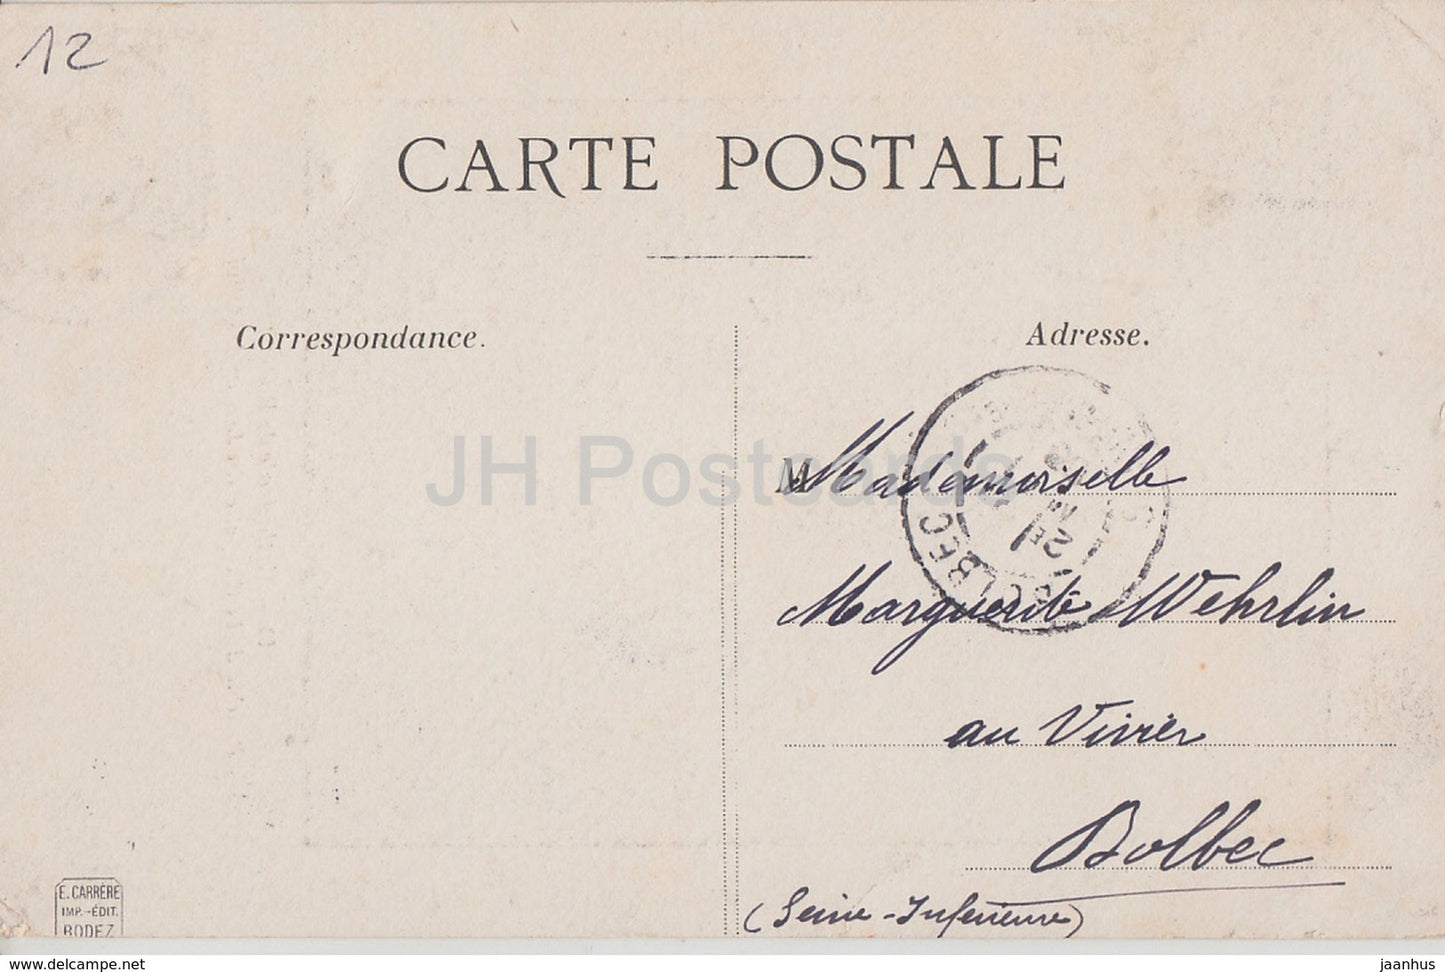 12
CARTE POSTALE
Correspondance.
Adresse.
JH Postcards
M Mademoiselle
BOLBEC
Marguerite Wehrlin
au Vivier
Bolbec
(Seine-Inférieure)
E. CARRÈRE
IMP.-ÉDIT.
RODEZ
www.delcampe.net
jaanhus